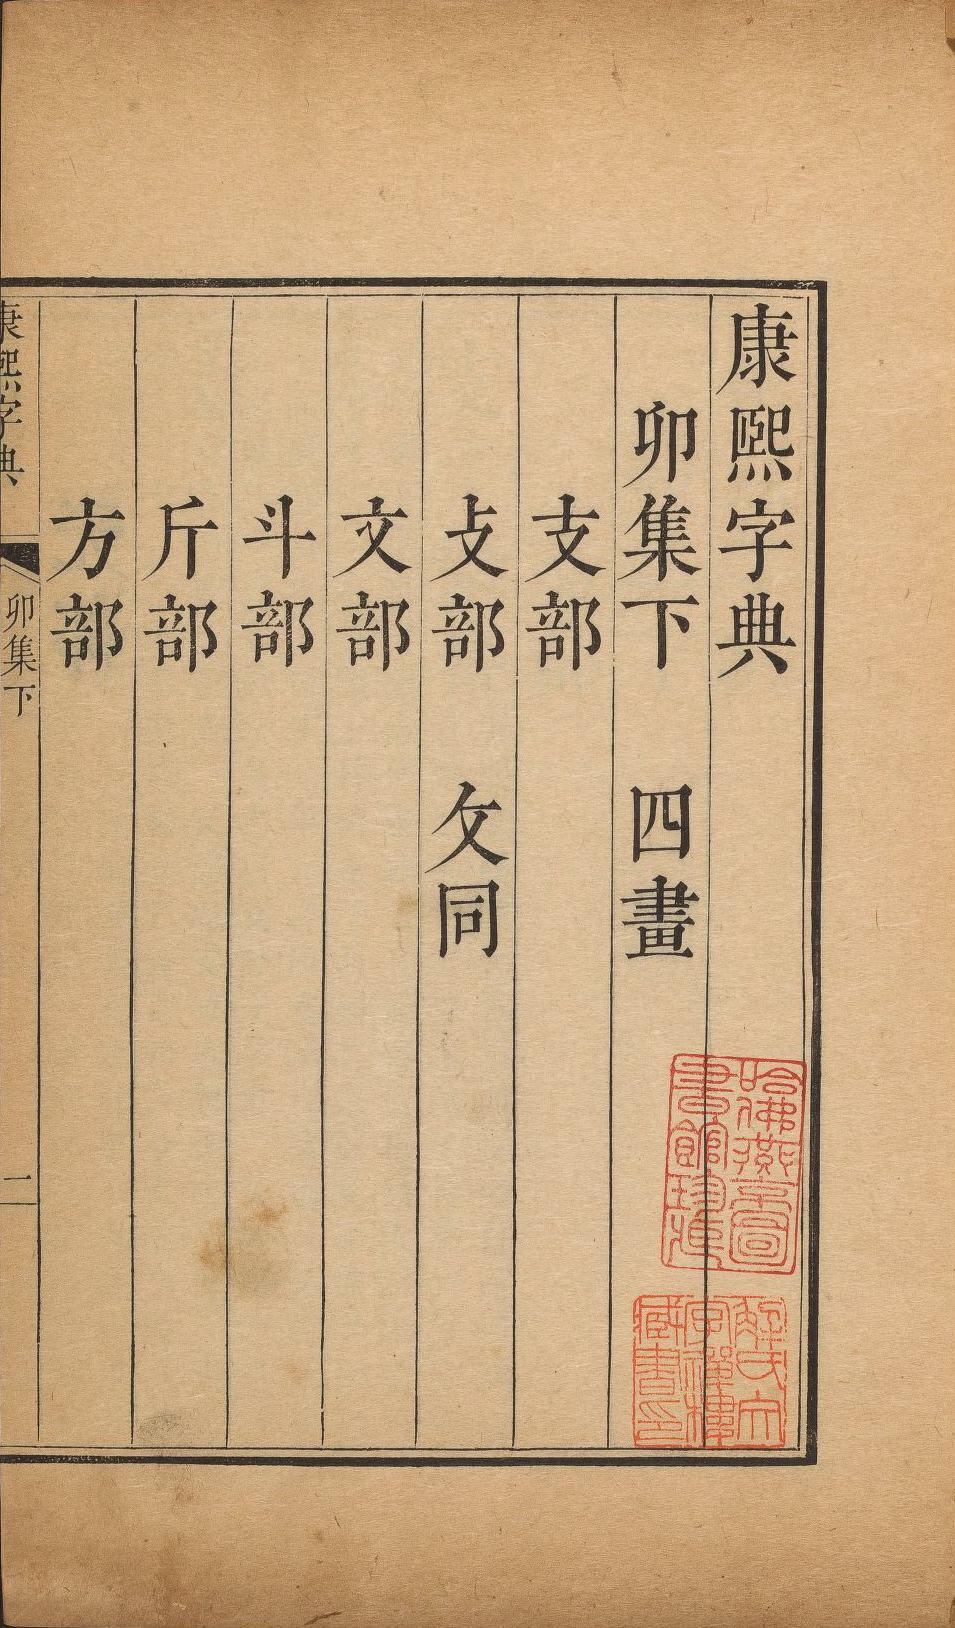 康熙字典
卯集下 四畫
支部
攴部 攵同
文部
斗部
斤部
方部
康熙字典
卯集下
一
哈佛燕京圖
書館珍藏